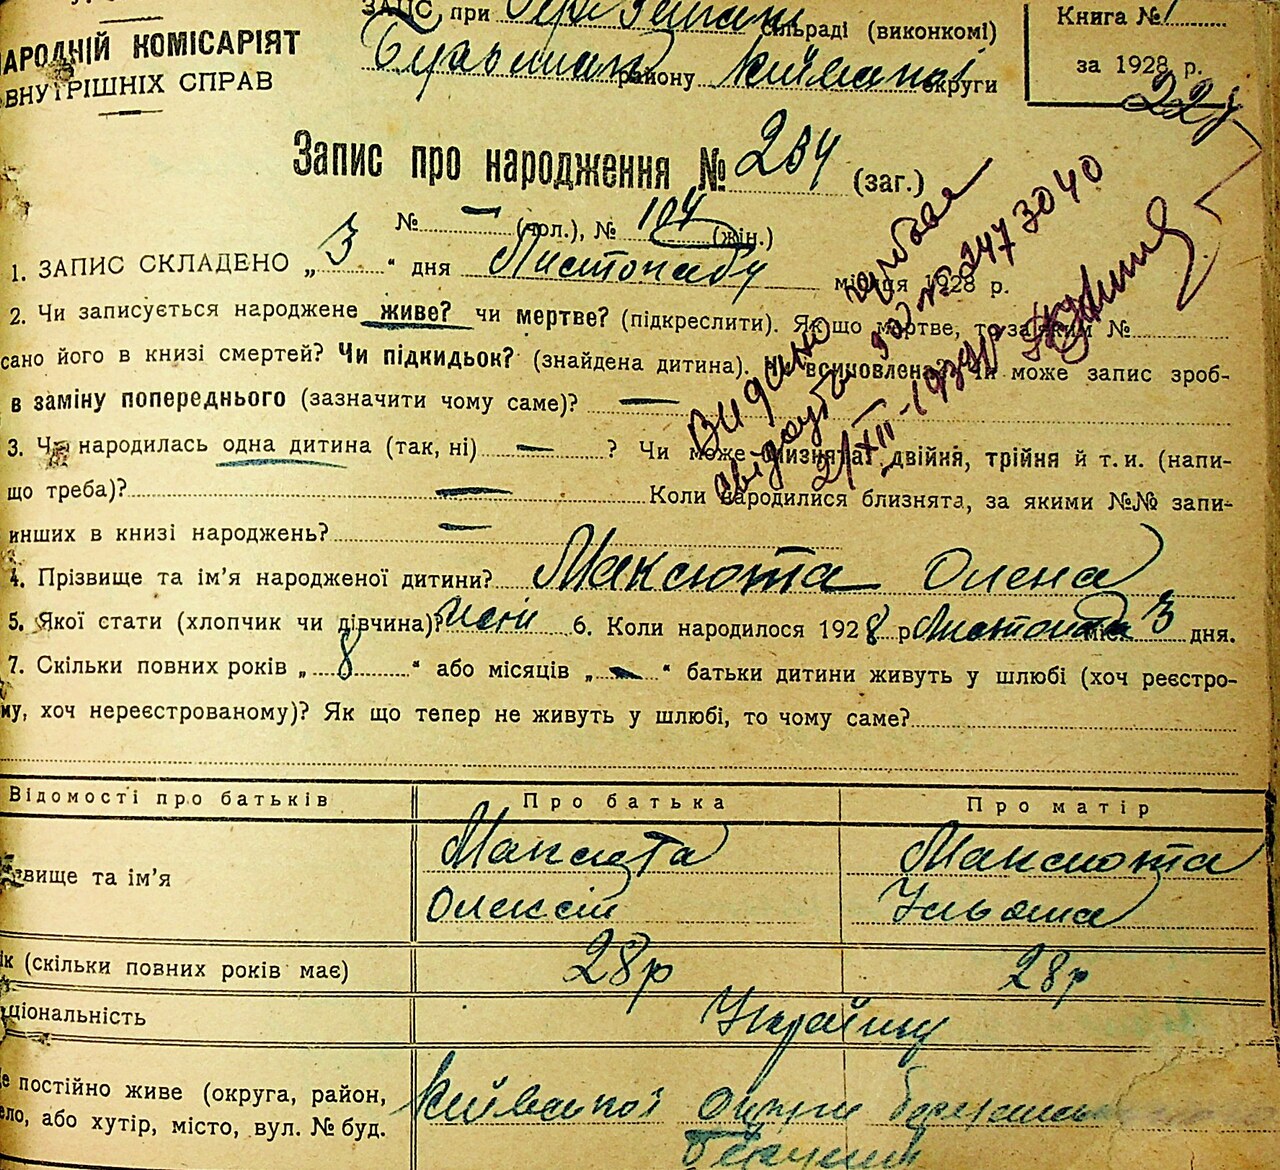 ЗАПС при сільраді (виконкомі)
Книга № 1
НАРОДНІЙ КОМІСАРІЯТ
району Київської округи
за 1928 р.
ВНУТРІШНІХ СПРАВ
Запис про народження № 234 (заг.)
№ — (чол.), № 104 (жін.)
1. ЗАПИС СКЛАДЕНО „ 3 “ дня Листопаду місяця 1928 р.
2. Чи записується народжене живе? чи мертве? (підкреслити). Як що мертве, то за яким №
сано його в книзі смертей? Чи підкидьок? (знайдена дитина). Чи всиновлена? Чи може запис зроб-
в заміну попереднього (зазначити чому саме)? —
Видано
свідоцтво
2/XII-193
3. Чи народилась одна дитина (так, ні) — ? Чи може близнята: двійня, трійня й т. и. (напи-
що треба)? — Коли народилися близнята, за якими №№ запи-
инших в книзі народжень? —
4. Прізвище та ім'я народженої дитини? Максюта Олена
5. Якої стати (хлопчик чи дівчина)? жін 6. Коли народилося 1928 р. Листопада міс. 3 дня.
7. Скільки повних років „ 8 “ або місяців „ — “ батьки дитини живуть у шлюбі (хоч реєстро-
му, хоч нереєстрованому)? Як що тепер не живуть у шлюбі, то чому саме?
Відомості про батьків Про батька Про матір
звище та ім'я Максюта Максюта
Олексій Ульяна
ік (скільки повних років має) 28р 28р
ціональність Українці
е постійно живе (округа, район, Київської округи
ело, або хутір, місто, вул. № буд.